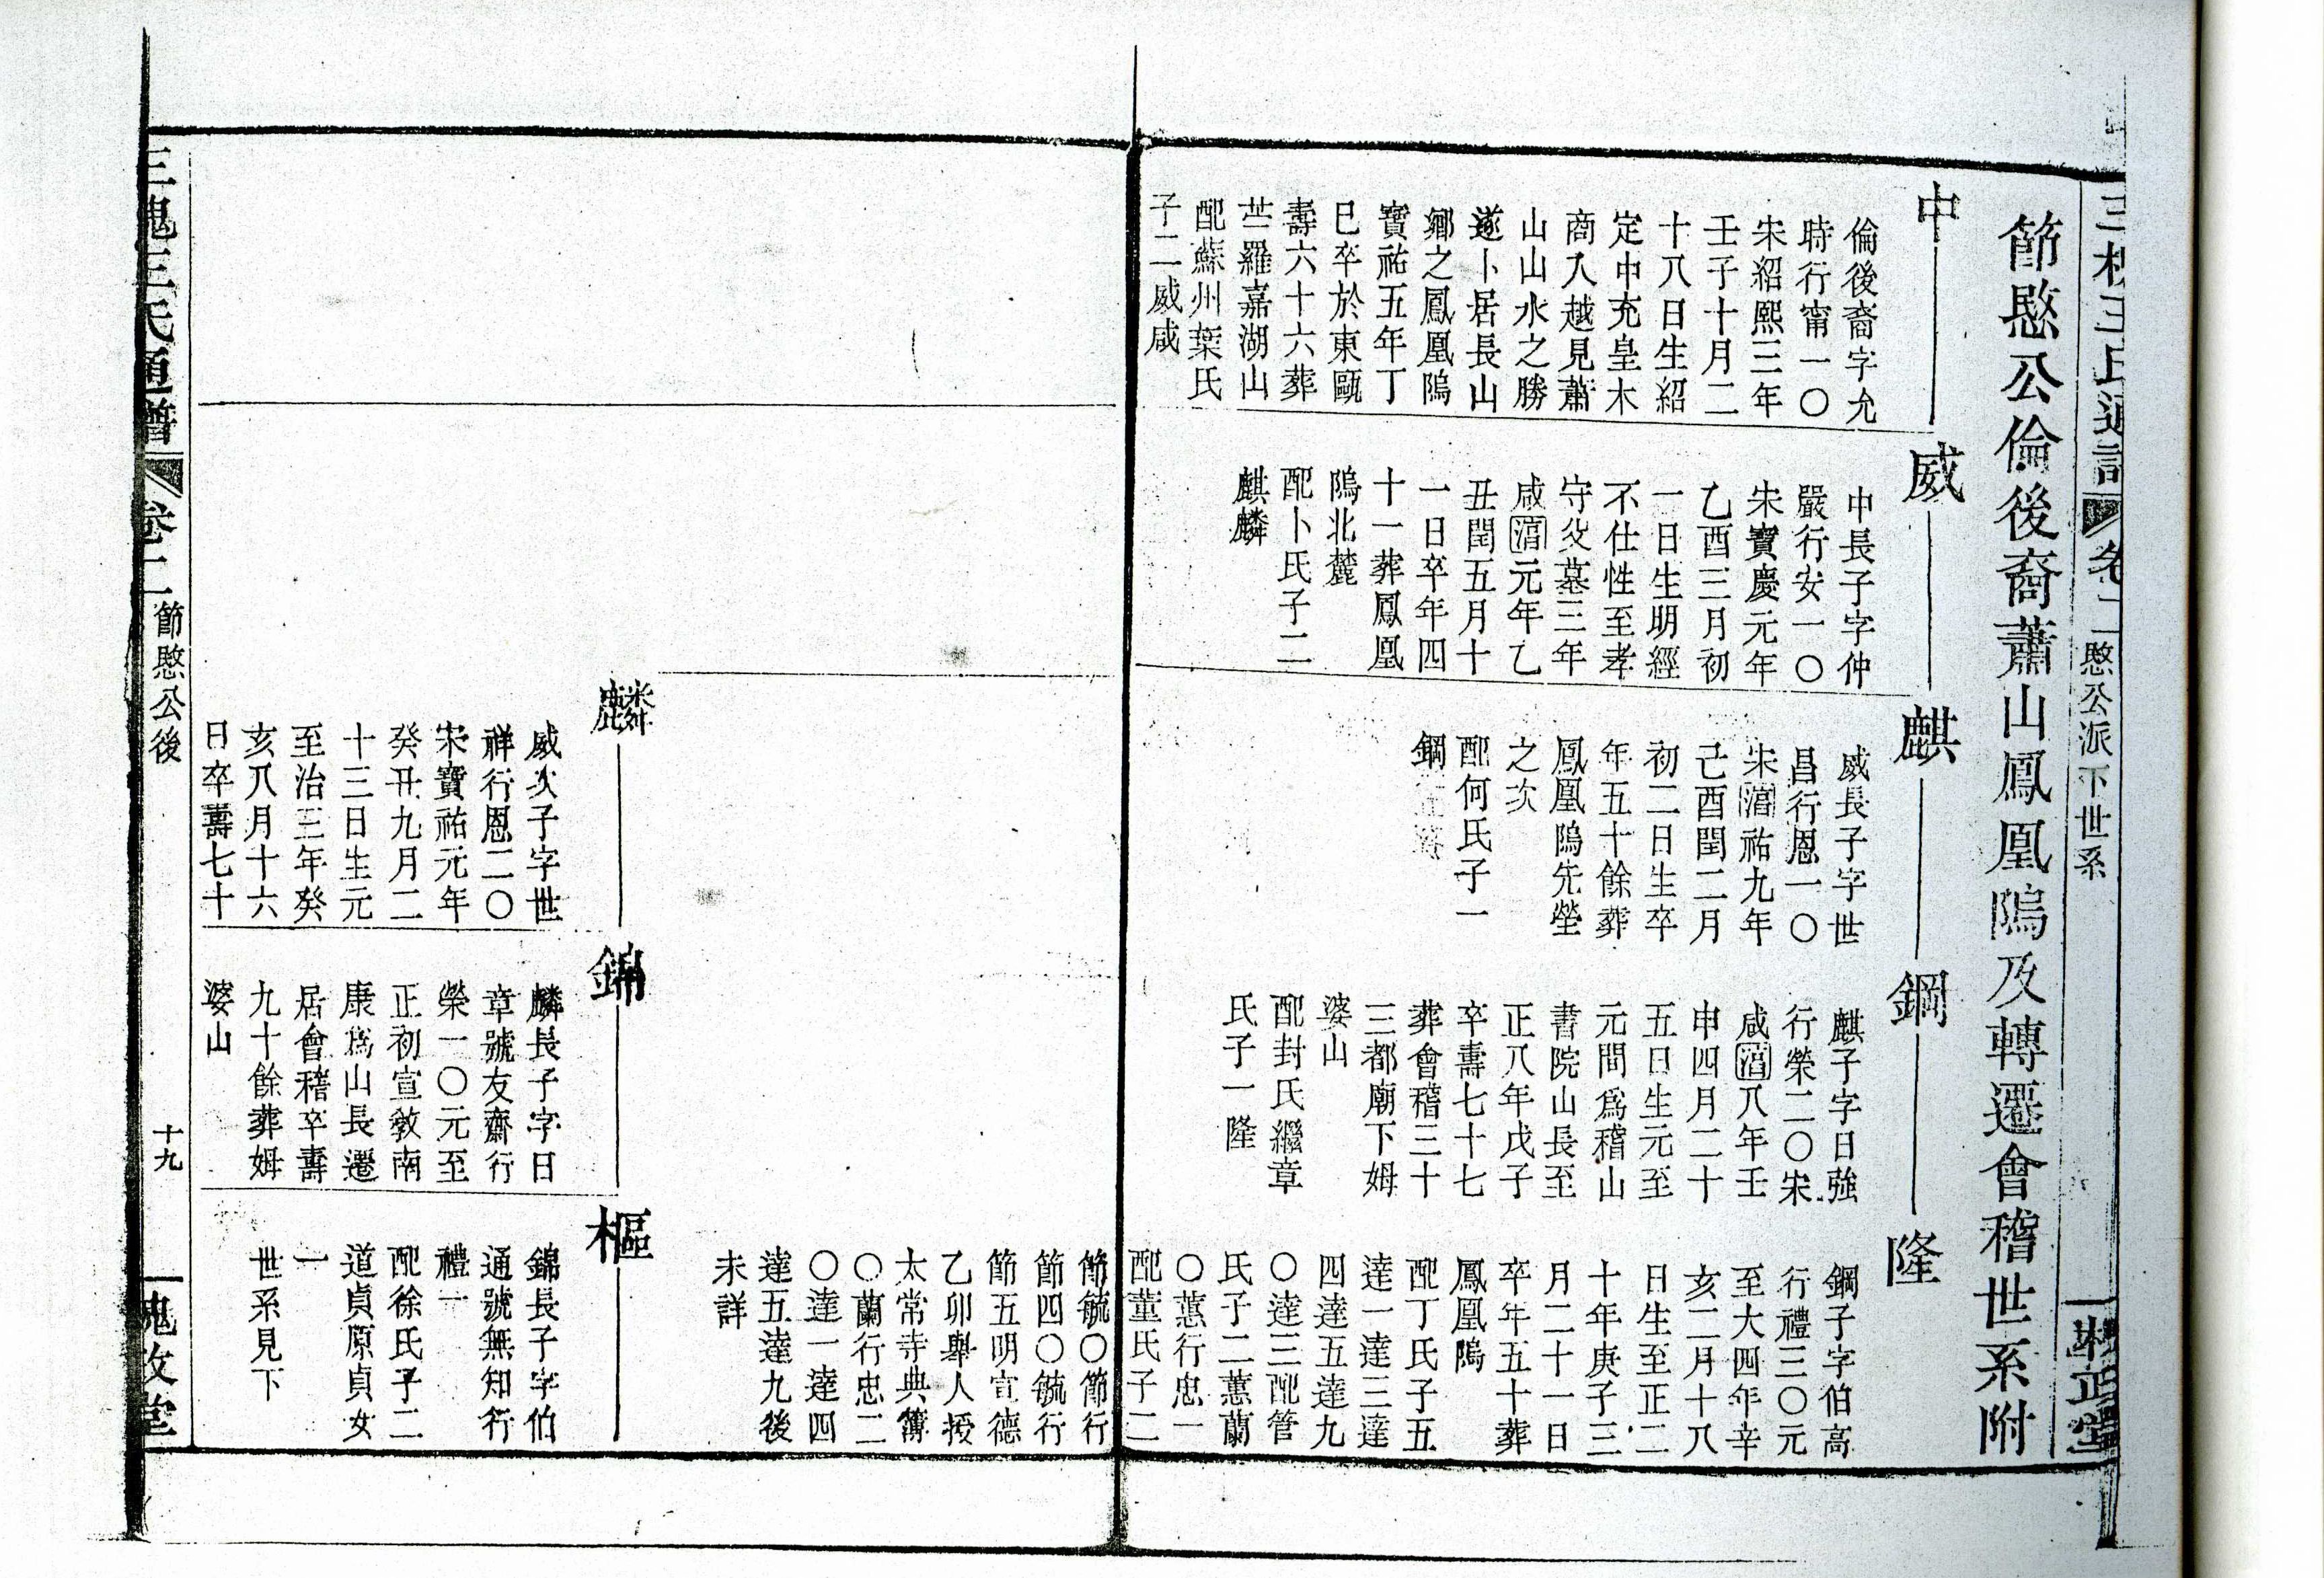 三槐王氏通譜
卷二
愍公派下世系
槐政堂
節愍公倫後裔蕭山鳳凰隖及轉遷會稽世系附
中
倫後裔字允
時行甯一〇
宋紹熙三年
壬子十月二
十八日生紹
定中充皇木
商入越見蕭
山山水之勝
遂卜居長山
鄉之鳳凰隖
寶祐五年丁
巳卒於東甌
壽六十六葬
苎羅嘉湖山
配蘇州葉氏
子二威咸
威
中長子字仲
嚴行安一〇
宋寶慶元年
乙酉三月初
一日生明經
不仕性至孝
守父墓三年
咸湻元年乙
丑閏五月十
一日卒年四
十一葬鳳凰
隖北麓
配卜氏子二
麒麟
麒
威長子字世
昌行恩一〇
宋湻祐九年
己酉閏二月
初二日生卒
年五十餘葬
鳳凰隖先塋
之次
配何氏子一
鋼
鋼
麒子字日強
行榮二〇宋
咸湻八年壬
申四月二十
五日生元至
元間爲稽山
書院山長至
正八年戊子
卒壽七十七
葬會稽三十
三都廟下姆
婆山
配封氏繼章
氏子一隆
隆
鋼子字伯高
行禮三〇元
至大四年辛
亥二月十八
日生至正二
十年庚子三
月二十一日
卒年五十葬
鳳凰隖
配丁氏子五
達一達三達
四達五達九
〇達三配管
氏子二蕙蘭
〇蕙行忠一
配董氏子二
節毓〇節行
節四〇毓行
節五明宣德
乙卯舉人授
太常寺典簿
〇蘭行忠二
〇達一達四
達五達九後
未詳
麟
威次子字世
祥行恩二〇
宋寶祐元年
癸丑九月二
十三日生元
至治三年癸
亥八月十六
日卒壽七十
錦
麟長子字日
章號友齋行
榮一〇元至
正初宣教南
康爲山長遷
居會稽卒壽
九十餘葬姆
婆山
樞
錦長子字伯
通號無知行
禮一
配徐氏子二
道貞原貞女
一
世系見下
三槐王氏通譜
卷二
節愍公後
十九
槐政堂